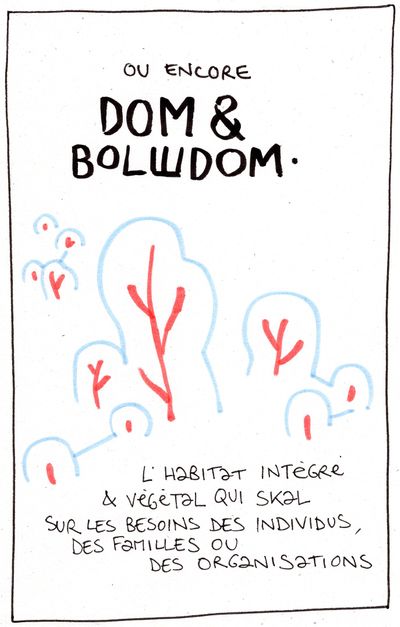 OU ENCORE
DOM &
BOLШDOM.
L'HABITAT INTÈGRÉ
& VÉGÉTAL QUI SKAL
SUR LES BESOINS DES INDIVIDUS,
DES FAMILLES OU
DES ORGANISATIONS